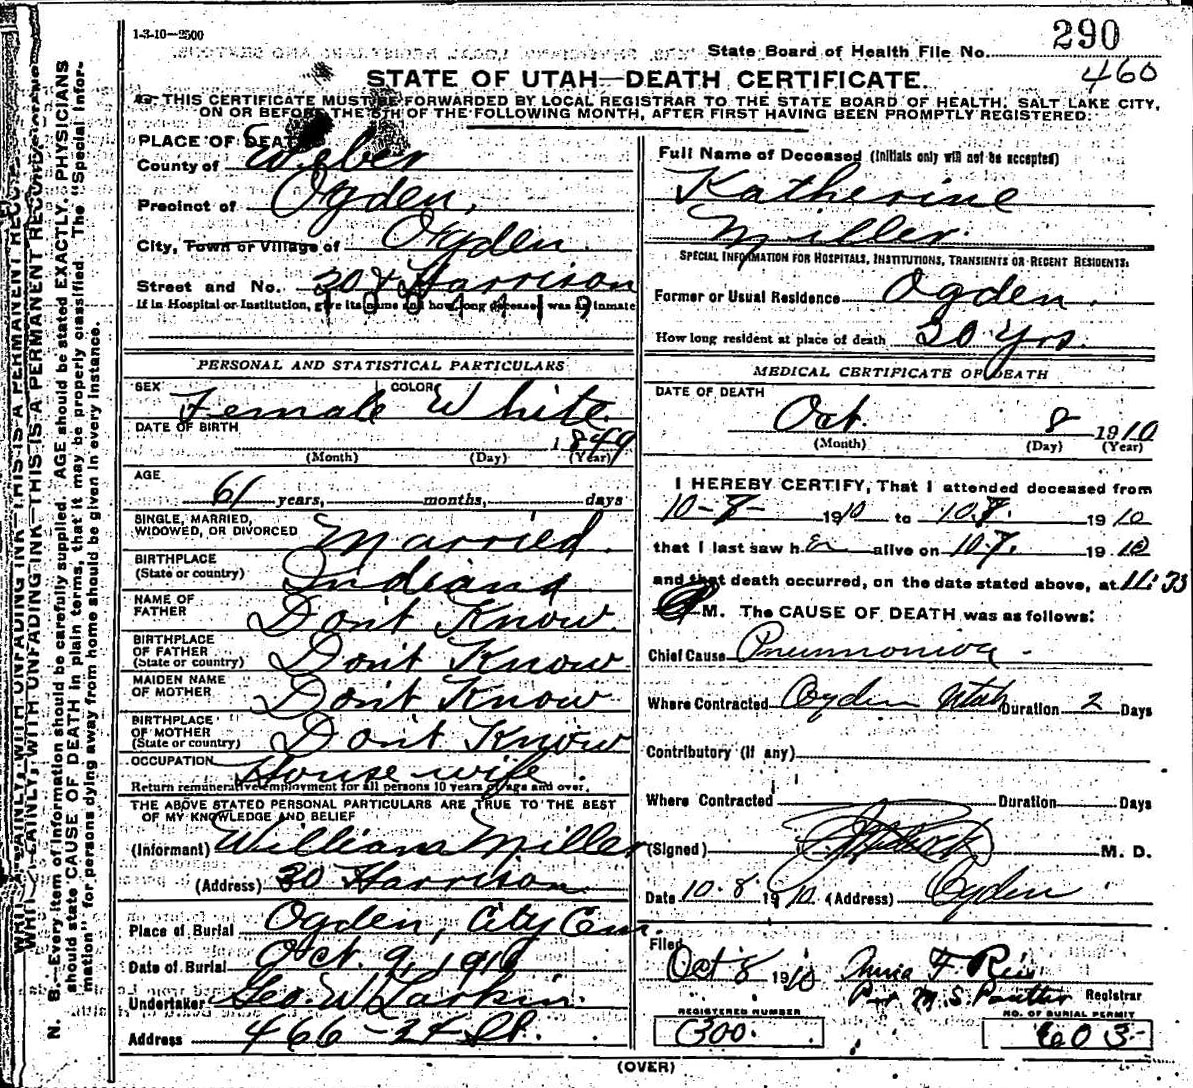 1-3-10-2500
State Board of Health File No. 290
460
STATE OF UTAH—DEATH CERTIFICATE.
THIS CERTIFICATE MUST BE FORWARDED BY LOCAL REGISTRAR TO THE STATE BOARD OF HEALTH, SALT LAKE CITY,
ON OR BEFORE THE 5TH OF THE FOLLOWING MONTH, AFTER FIRST HAVING BEEN PROMPTLY REGISTERED.
PLACE OF DEATH
County of Weber
Precinct of Ogden,
City, Town or Village of Ogden
Street and No. Harrison
If in Hospital or Institution, give its name and how long deceased was an inmate
PERSONAL AND STATISTICAL PARTICULARS
SEX Female COLOR White
DATE OF BIRTH 1849
(Month) (Day) (Year)
AGE
61 years, months, days
SINGLE, MARRIED,
WIDOWED, OR DIVORCED Married.
BIRTHPLACE
(State or country) Indiana
NAME OF
FATHER Don't Know
BIRTHPLACE
OF FATHER
(State or country) Don't Know
MAIDEN NAME
OF MOTHER Don't Know
BIRTHPLACE
OF MOTHER
(State or country) Don't Know
OCCUPATION House wife.
Return remunerative employment for all persons 10 years of age and over.
THE ABOVE STATED PERSONAL PARTICULARS ARE TRUE TO THE BEST
OF MY KNOWLEDGE AND BELIEF
(Informant) William Miller
(Address) 30 Harrison
Place of Burial Ogden, City Cem.
Date of Burial Oct. 9, 1910
Undertaker Geo. W Larkin.
Address 466-24 St.
Full Name of Deceased (Initials only will not be accepted)
Katherine
Miller.
SPECIAL INFORMATION FOR HOSPITALS, INSTITUTIONS, TRANSIENTS OR RECENT RESIDENTS.
Former or Usual Residence Ogden.
How long resident at place of death 20 yrs.
MEDICAL CERTIFICATE OF DEATH
DATE OF DEATH
Oct. 8 1910
(Month) (Day) (Year)
I HEREBY CERTIFY, That I attended deceased from
1910 to 1910
that I last saw her alive on 10.7. 1910
and that death occurred, on the date stated above, at
M. The CAUSE OF DEATH was as follows:
Chief Cause Pneumonia
Where Contracted Ogden Utah Duration 2 Days
Contributory (if any)
Where Contracted Duration Days
(Signed) M. D.
Date 10.8 1910 (Address) Ogden
Filed
Oct 8 1910
Per M. S. Registrar
REGISTERED NUMBER
300.
NO. OF BURIAL PERMIT
603
(OVER)
N. B.—Every item of information should be carefully supplied. AGE should be stated EXACTLY. PHYSICIANS
should state CAUSE OF DEATH in plain terms, that it may be properly classified. The "Special Infor-
mation" for persons dying away from home should be given in every instance.
WRITE PLAINLY, WITH UNFADING INK—THIS IS A PERMANENT RECORD